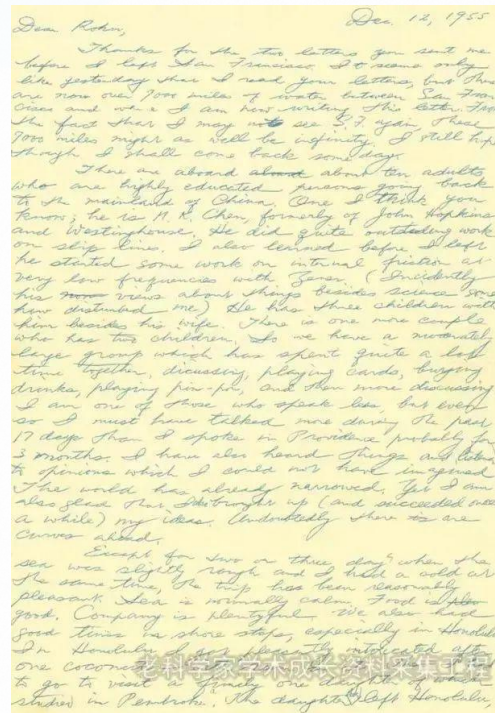 Dec. 12, 1955
Dear Rohn,
Thanks for the two letters you sent me
before I left San Francisco. It seems only
like yesterday that I read your letters, but there
are now over 7000 miles of water between San Fran
cisco and where I am now writing this letter. From
the fact that I may not see S.F. again, these
7000 miles might as well be infinity. I still hope
though I shall come back some day.
There are aboard about ten adults
who are highly educated persons going back
to the mainland of China. One I think you
know; he is M. K. Chen, formerly of John Hopkins
and Westinghouse. He did quite outstanding work
on slip lines. I also learned before I left
he started some work on internal friction at
very low frequencies with Zener. (Incidently
his views about things besides science some
how disturbed me) He has three children with
him besides his wife. There is one more couple
who has two children. So we have a moderately
large group which has spent quite a lot
time together, dicussing, playing cards, buying
drinks, playing pin-pon, and then more discussing
I am one of those who speak less, but even
so I must have talked more during the past
17 days than I spoke in Providence probably for
3 months. I have also heard things and listened
to opinions which I could not have imagined
The world has already narrowed. Yet I am
also glad that I brought up (and succeeded once
a while) my ideas. Undoubtedly there are
curves ahead.
Except for two or three days when the
sea was slightly rough and I had a cold at
the same time, the trip has been reasonably
pleasant. Sea is normally calm. Food is
good. Company is plentyful. We also had
good times in shore stops, especially in Honolulu
In Honolulu I got pleasantly intoxicated after
one coconut
to go to visit a family one daughter of which
studied in Pembroke. The daughter left Honolulu,
老科学家学术成长资料采集工程